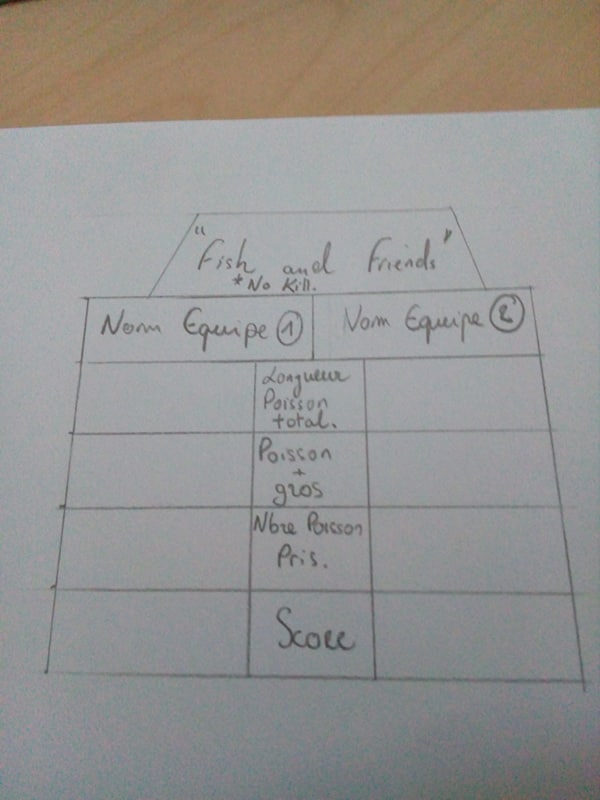 "Fish and Friends"
*No Kill.
Nom Equipe 1
Nom Equipe 2
Longueur
Poisson
total.
Poisson
+
gros
Nbre Poisson
Pris.
Score